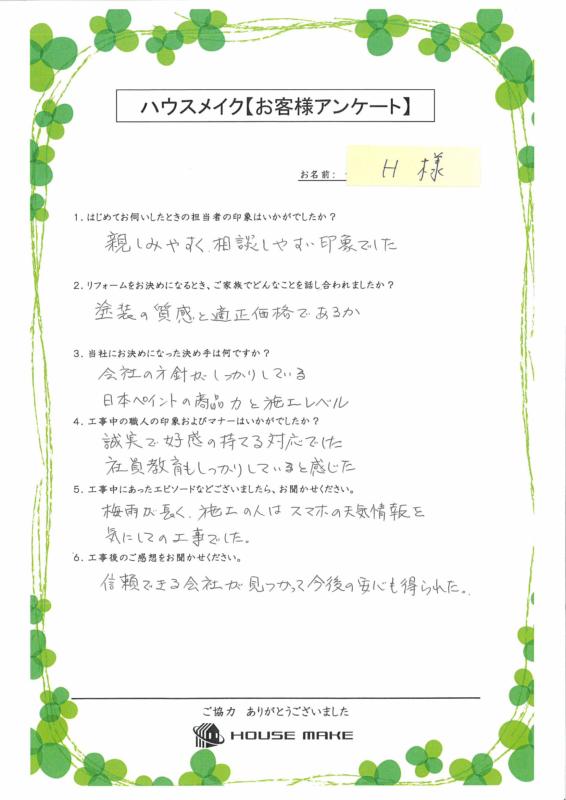 ハウスメイク【お客様アンケート】
お名前: H 様
1．はじめてお伺いしたときの担当者の印象はいかがでしたか？
親しみやすく、相談しやすい印象でした
2．リフォームをお決めになるとき、ご家族でどんなことを話し合われましたか？
塗装の質感と適正価格であるか
3．当社にお決めになった決め手は何ですか？
会社の方針がしっかりしている
日本ペイントの商品力と施工レベル
4．工事中の職人の印象およびマナーはいかがでしたか？
誠実で好感の持てる対応でした
社員教育もしっかりしていると感じた
5．工事中にあったエピソードなどございましたら、お聞かせください。
梅雨が長く、施工の人はスマホの天気情報を
気にしての工事でした。
6．工事後のご感想をお聞かせください。
信頼できる会社が見つかって今後の安心も得られた。
ご協力 ありがとうございました
HOUSE MAKE